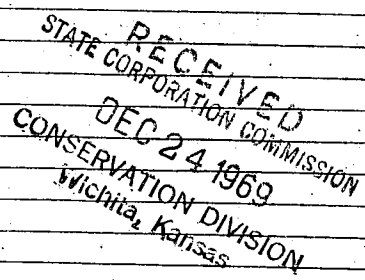 RECEIVED
STATE CORPORATION COMMISSION
DEC 24 1969
CONSERVATION DIVISION
Wichita, Kansas